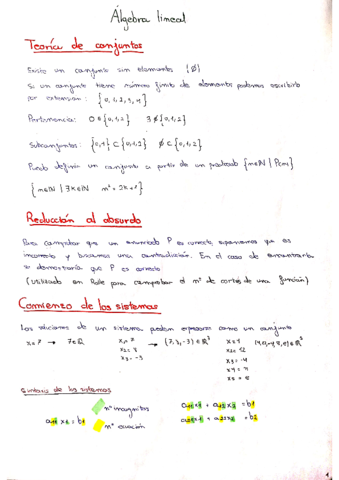 Álgebra lineal
Teoría de conjuntos
Existe un conjunto sin elementos {Ø}
Si un conjunto tiene número finito de elementos podemos escribirlo
por extensión: {0,1,2,3,4}
Pertenencia: 0∈{0,1,2} 3∉{0,1,2}
Subconjuntos: {0,1}⊂{0,1,2} Ø⊂{0,1,2}
Puedo definir un conjunto a partir de un predicado {m∈N | P(m)}
{m∈N | ∃K∈N m²=2K+1}
Reducción al absurdo
Para comprobar que un enunciado P es correcto, suponemos que es
incorrecto y buscamos una contradicción. En el caso de encontrarla
se demostraría que P es correcto
(utilizado en Rolle para comprobar el nº de cortes de una función)
Comienzo de los sistemas
Las soluciones de un sistema pueden expresarse como un conjunto
x=7 → 7∈R x1=7 → (7,3,-3)∈R³ x=4
x3=-3 x3=-4
Sintaxis de los sistemas
nº incógnitas a11x1 + a12x2 = b1
a11x1=b1 nº ecuación a21x1 + a22x2 = b2